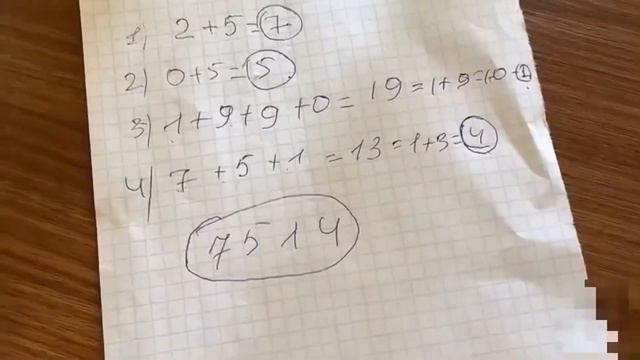 1) 2+5=7
2) 0+5=5
3) 1+9+9+0=19=1+9=10=1
4) 7+5+1=13=1+3=4
7514